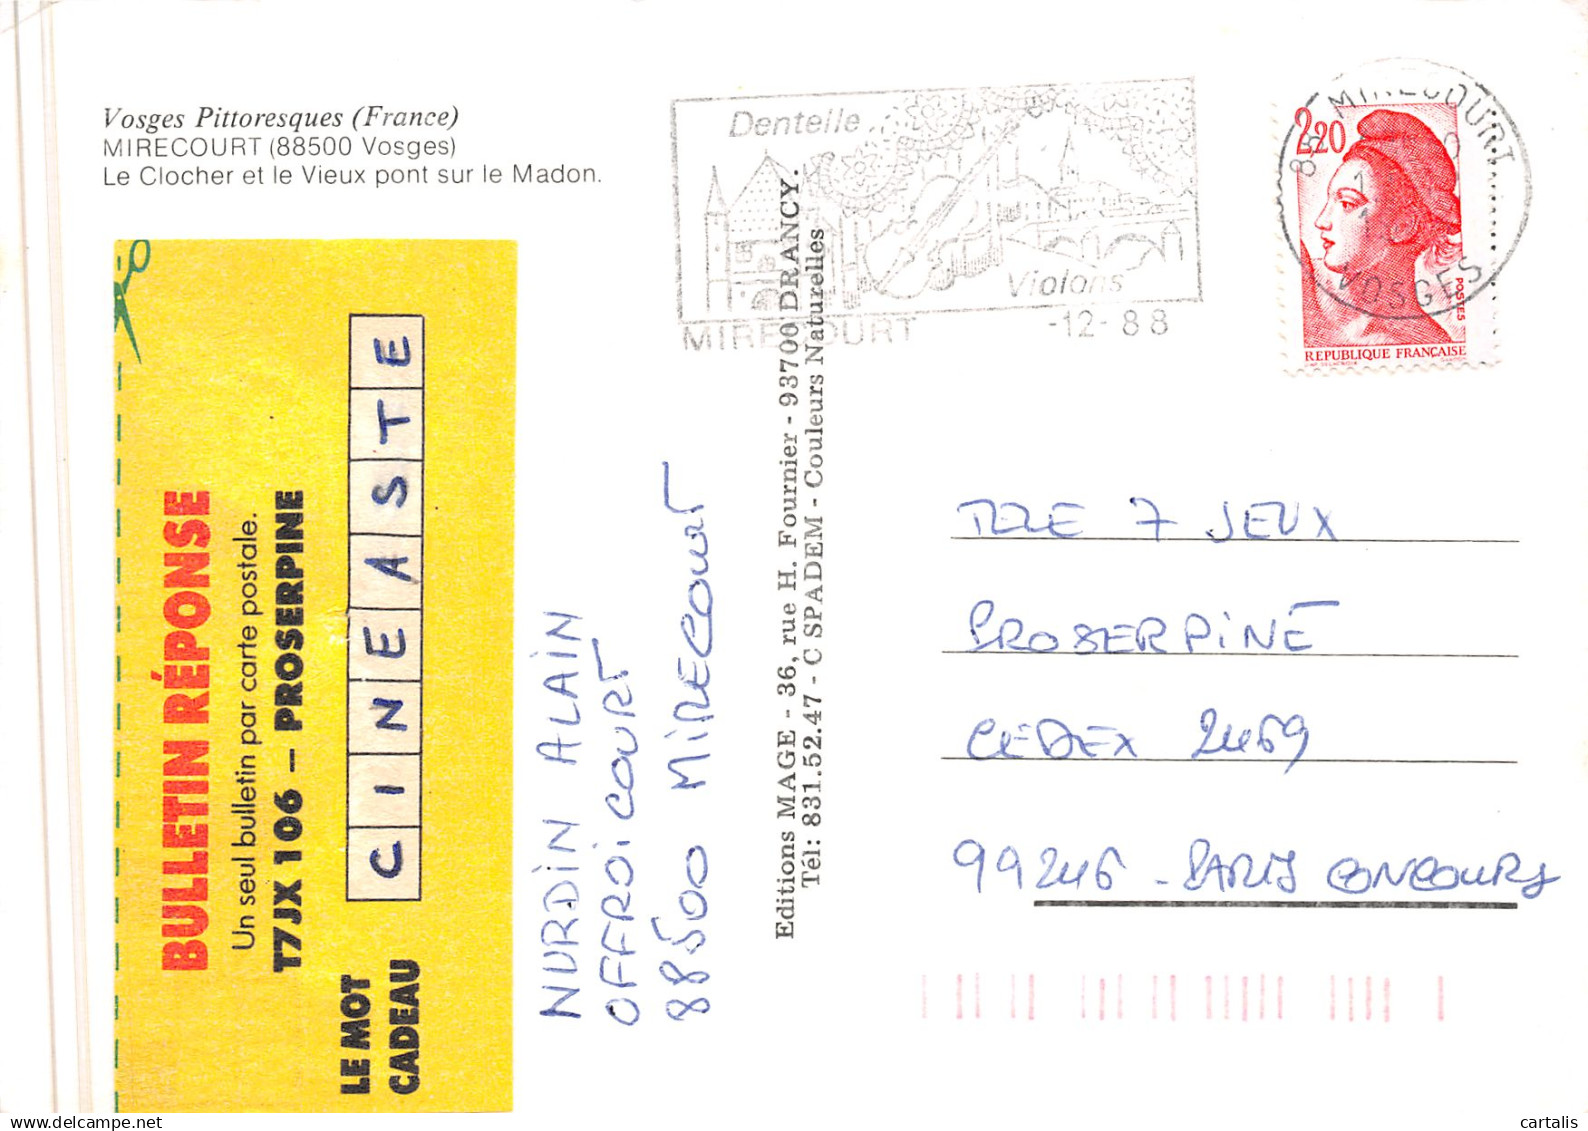 Vosges Pittoresques (France)
MIRECOURT (88500 Vosges)
Le Clocher et le Vieux pont sur le Madon.
BULLETIN RÉPONSE
Un seul bulletin par carte postale.
T7JX 106 – PROSERPINE
LE MOT
CADEAU
CINEASTE
NURDIN ALAIN
OFFROICOURT
88500 MIRECOURT
Editions MAGE - 36, rue H. Fournier - 93700 DRANCY.
Tél: 831.52.47 - C SPADEM - Couleurs Naturelles
Dentelle
Violons
MIRECOURT -12-88
88 MIRECOURT
VOSGES
2,20
POSTES
REPUBLIQUE FRANÇAISE
TELE 7 JEUX
PROSERPINE
CEDEX 2469
99246 - PARIS CONCOURS
cartalis